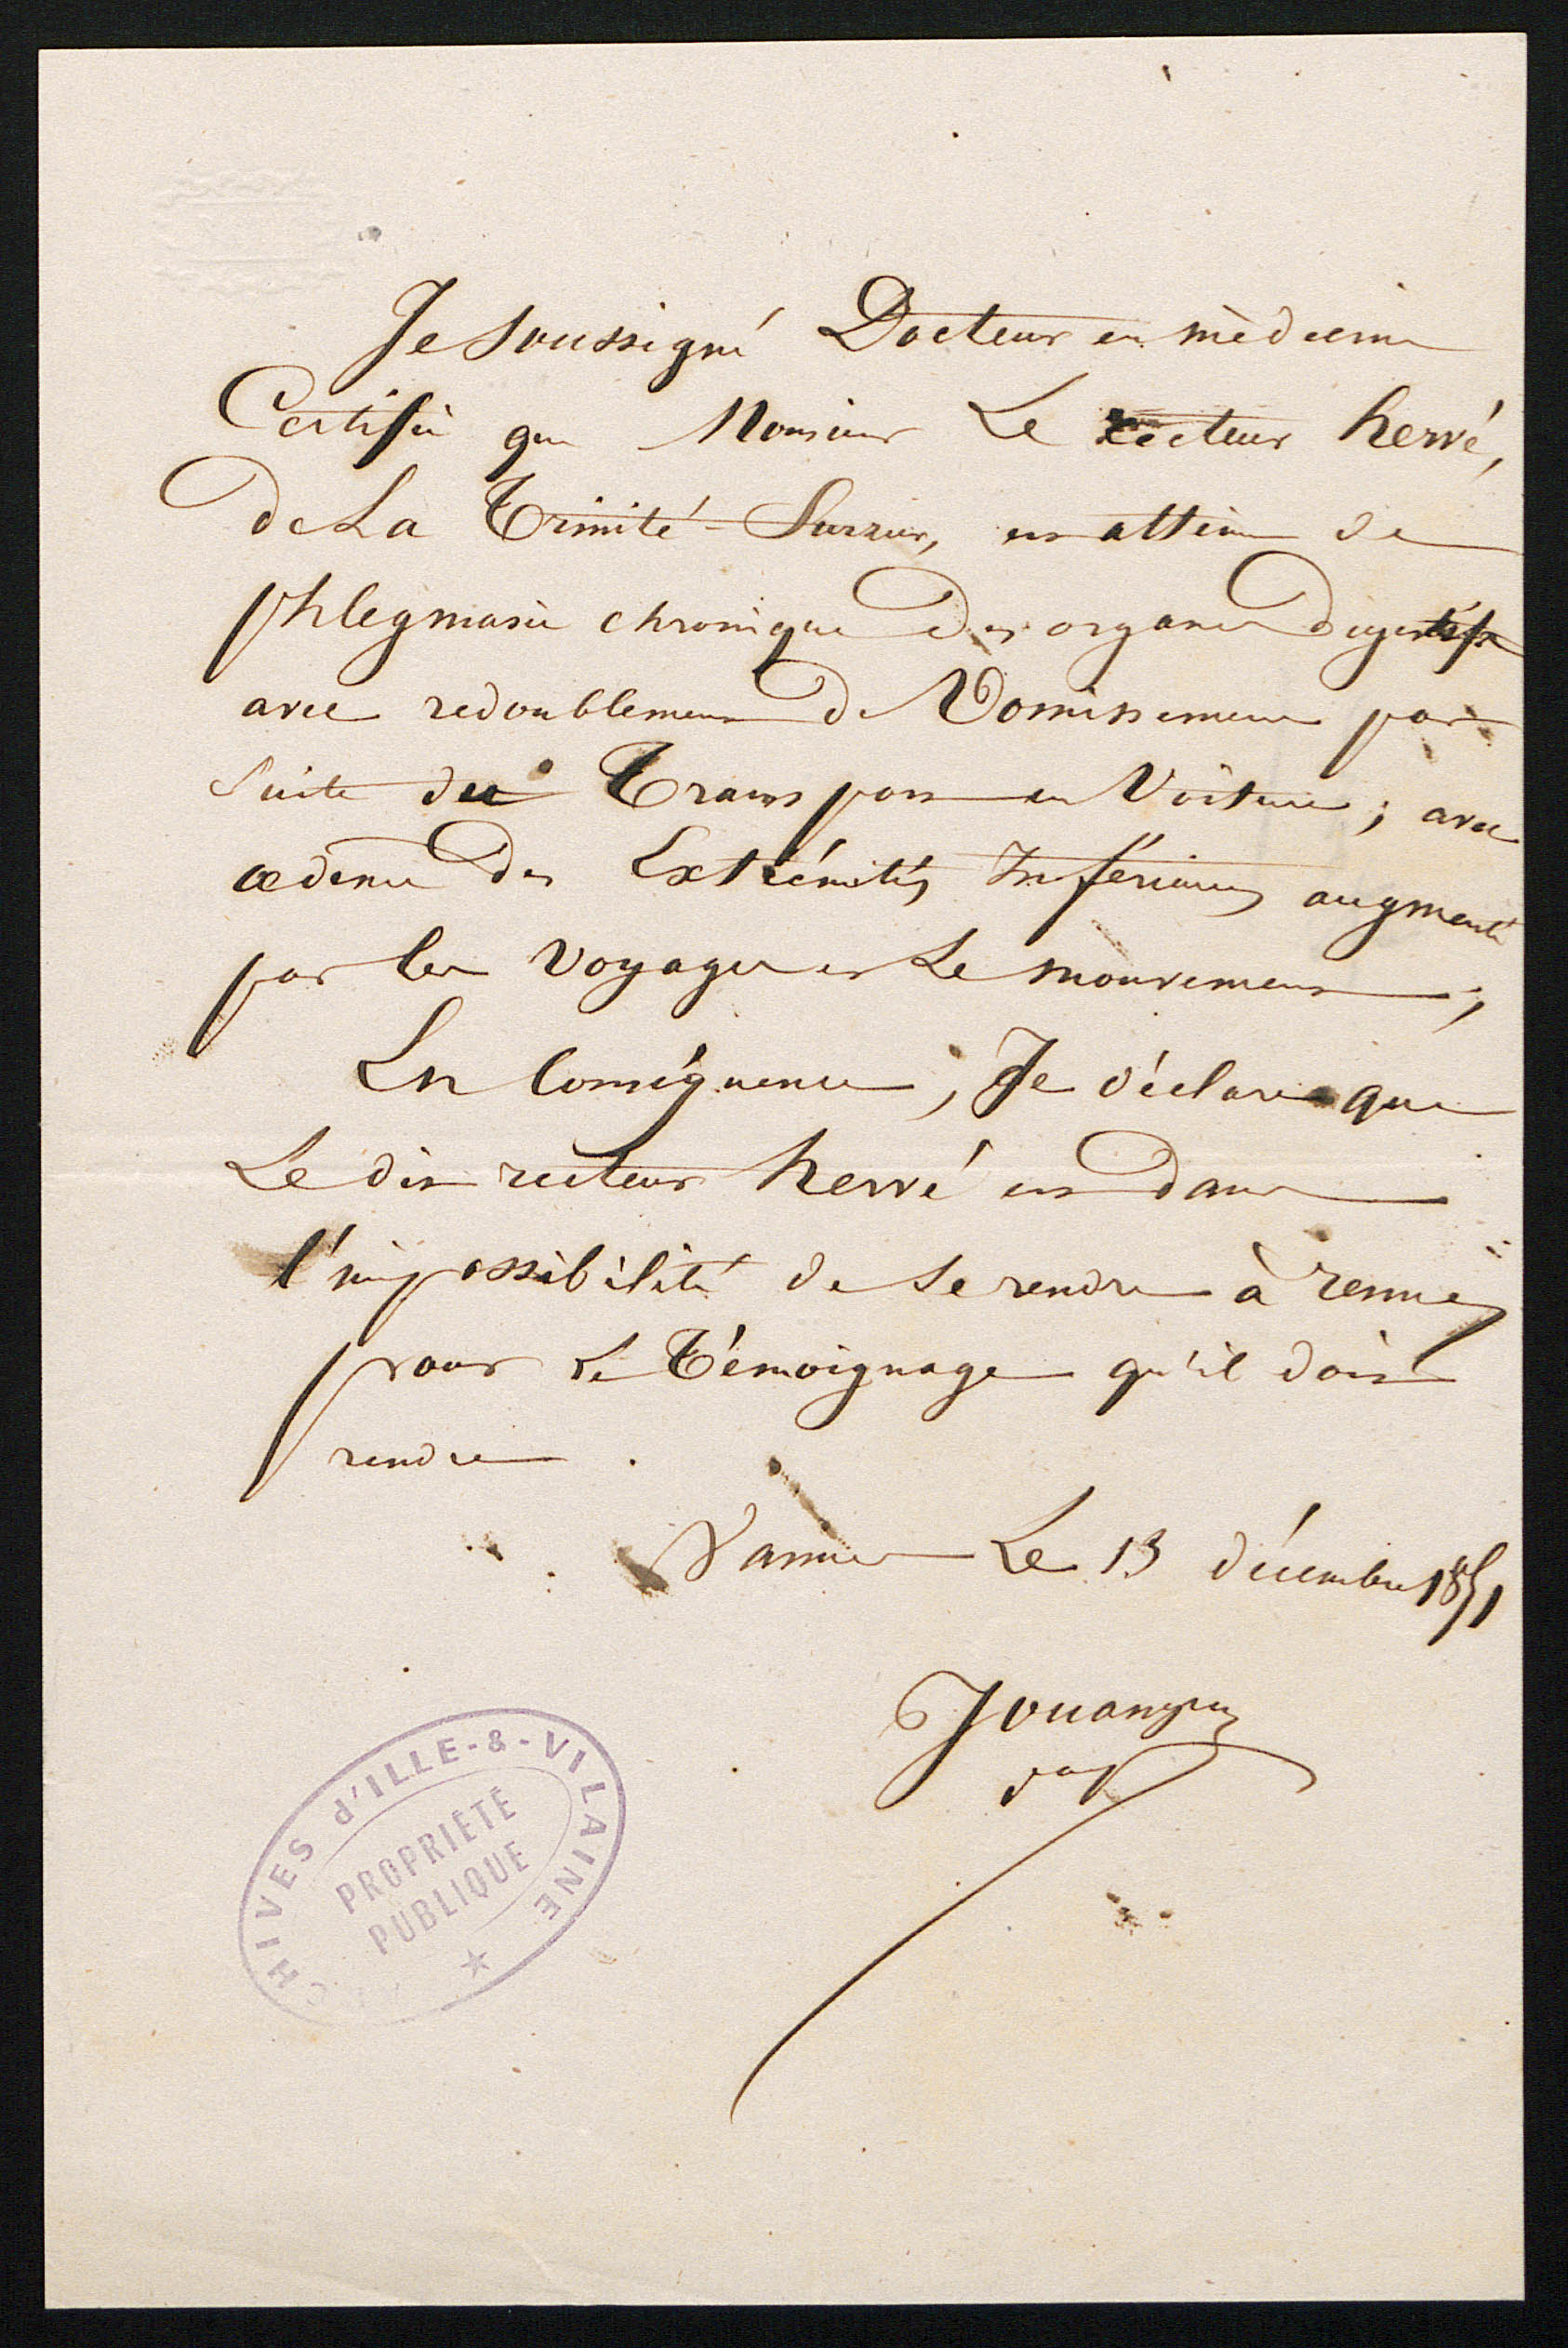 Je soussigné Docteur en médecine
Certifie que Monsieur Le recteur hervé,
de La Trinité-Surzur, est atteint de
phlegmasie chronique des organes digestifs
avec redoublement de Vomissement par
Suite du Transport en Voiture ; avec
œdeme des Extrémités Inférieures augmenté
par les voyages et Le mouvement ;
En Conséquence, Je déclare que
Le dit recteur hervé est dans
l'impossibilité de se rendre à rennes
pour Le Témoignage qu'il doit
rendre .
Vannes Le 13 décembre 1851
CHIVES d'ILLE-&-VILAINE
PROPRIETE
PUBLIQUE